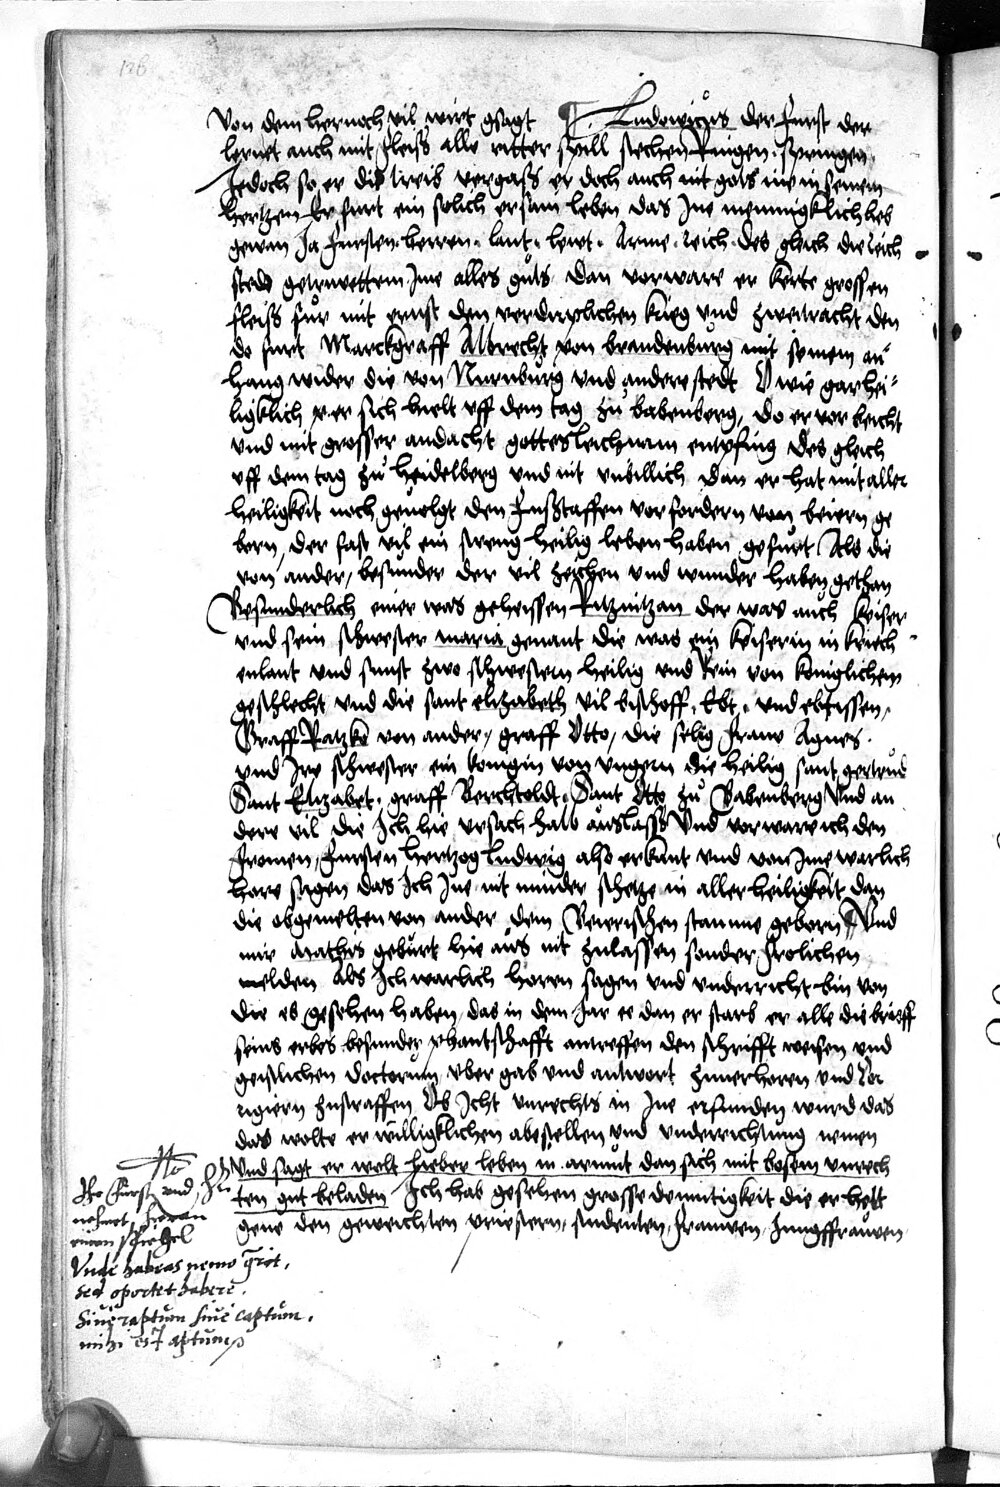 126
Von dem hernoch vil wirt gsagt ¶ Ludowicus der Furst der
lernet auch mit fleiss alle ritter spill stechen Ringen springen
Jedoch so er diß treib vergass er doch auch nit gots nie in seinem
hertzen Er furt ein solich ersam leben das Jne mennigklich lieb
gewan Ja fursten herren lant lewt Arme reich des gleich die reich
stede getrwettem Jme alles guts dan vorware er kerte grossen
fleiss fur mit ernst den verderplichen krieg und zweitracht den
do furt Marckgraff Albrecht von brandenburg mit seinem an
hang wider die von Nurnburg und andere stedt O wie gar hei
ligklich er sich hielt uff dem tag zu babenberg, do er vor beicht
und mit grosser andacht gottes leichnam entpfing des gleich
uff dem tag zu heidelberg und nit unbillich dan er hat mit aller
heiligkeit noch geuolgt den fußstaffen vorfordern von beiern ge
born, der fast vil ein streng heilig leben haben gefurt Als die
von ander, besunder der vil zeichen und wunder haben gethan
Besunderlich einer was geheissen Ratznitzan der was auch keiser
und sein schwester maria genant die was ein keiserin in kriech
enlant und sunst zwo schwestern heilig und rein von koniglichem
geschlecht und die sant elizabeth vil bischoff, Ebt, und ebtissen,
Graff Ratzke von ander, graff Otto, die selig fraw Agnes
und Jre schwester ein konigin von ungern die heilig sant gertrud
Sant Elizabet, graff Berchtoldt, Sant Otto zu Babenberg Und an
dere vil die Jch hie ursach halb auslasse Und vorware ich den
fromen fursten hertzog ludwig also erkant und von Jme warlich
hore sagen das Jch Jne nit minder schetze in aller heiligkeit dan
die obgemelten von ander dem Beierischen stamme geborn ¶ Und
mir geburt hie aus nit zulassen sonder frolichen
melden Als Jch warlich horen sagen und underricht bin von
die es gesehen haben, das in dem Jar ee dan er starb er alle die brieff
seins erbes besunder phantschafft antreffen den schrifft weisen und
geistlichen doctorum uber gab und antwort zuuerhoren und Cor
rigiern zustraffen Ob Jcht unrechts in Jne erfunden wurd das
das wolte er willigklichen abestellen und underrichtung nemen
Und sagt er wolt lieber leben in armut dan sich mit bosem unrech
ten gut beladen Jch hab gesehen grosse demutigkeit die er hett
gene den geweichten priestern, studenten, frauwen, Jungffrauwen
Jhr Fürst und
nehmet hieran
einen spiegel
Unde habeas nemo quærit,
sed oportet habere.
Sive raptum sive captum.
mihi est aptum